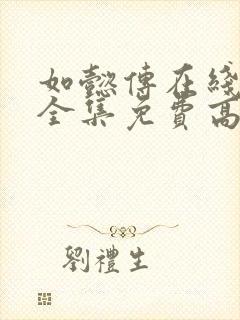 如懿傳在綫
全集免費高
劉禮生